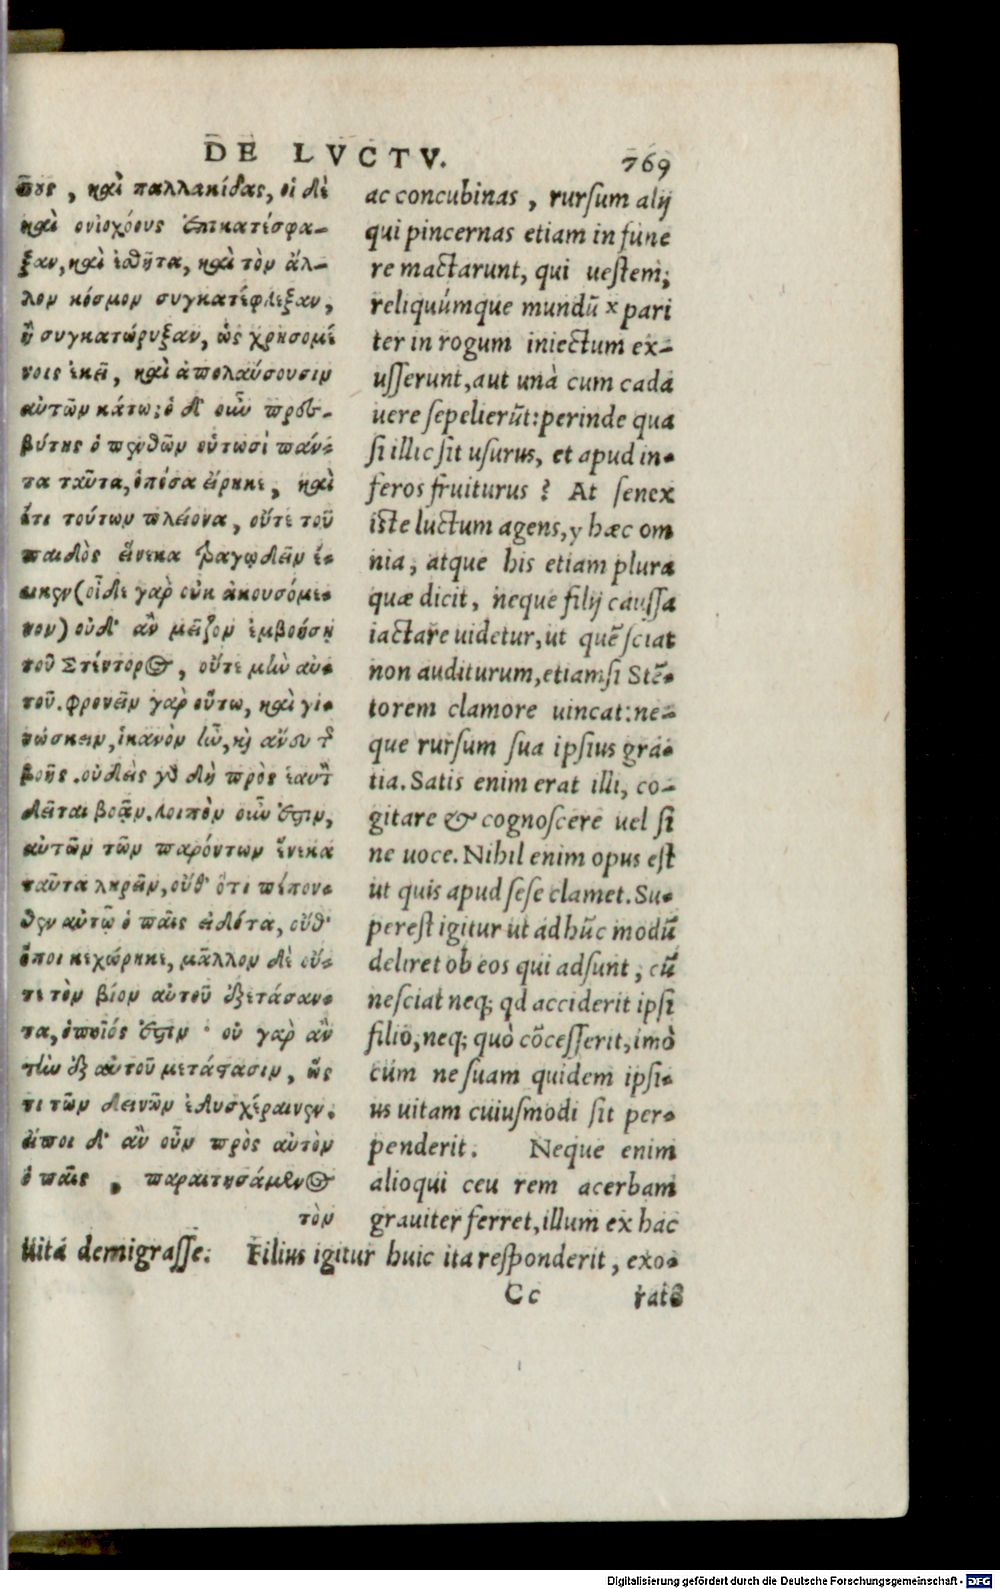 DE LVCTV. 769
πους, καὶ παλλακίδας, οἱ δὲ
καὶ οἰνοχόους ἐπικατέσφα-
ξαν, καὶ ἐσθῆτα, καὶ τὸν ἄλ-
λον κόσμον συγκατέφλεξαν,
ἢ συγκατώρυξαν, ὡς χρησομέ
νοις ἐκεῖ, καὶ ἀπολαύσουσιν
αὐτῶν κάτω; ὁ δ' οὖν πρεσ-
βύτης ὁ πενθῶν οὑτωσὶ πάν-
τα ταῦτα, ὁπόσα εἴρηκε, καὶ
ἔτι τούτων πλείονα, οὔτε τοῦ
παιδὸς ἕνεκα τραγῳδεῖν ἔ-
οικεν (οἶδε γὰρ οὐκ ἀκουσόμε-
νον) οὐδ' ἂν μεῖζον ἐμβοήσῃ
τοῦ Στέντορος, οὔτε μὴν αὑ-
τοῦ. φρονεῖν γὰρ οὕτω, καὶ γι-
νώσκειν, ἱκανὸν ἦν, κὴ ἄνευ τῆ
βοῆς. οὐδεὶς γὰρ δὴ πρὸς ἑαυτὸν
δεῖται βοᾷν. λοιπὸν οὖν ἐστιν,
αὐτῶν τῶν παρόντων ἕνεκα
ταῦτα ληρεῖν, οὔθ' ὅτι πέπον-
θεν αὐτῷ ὁ παῖς εἰδότα, οὔθ'
ὅποι κεχώρηκε, μᾶλλον δὲ οὔ-
τε τὸν βίον αὐτοῦ ἐξετάσαν-
τα, ὁποῖός ἐστιν · οὐ γὰρ ἂν
τὴν ἐξ αὐτοῦ μετάστασιν, ὥς
τι τῶν δεινῶν ἐδυσχέραινεν.
εἴποι δ' ἂν οὖν πρὸς αὐτὸν
ὁ παῖς, παραιτησάμενος
τὸν
ac concubinas, rurſum alij
qui pincernas etiam in fune
re mactarunt, qui ueſtem,
reliquúmque mundū x pari
ter in rogum iniectum ex-
uſſerunt, aut unà cum cada
uere ſepelierūt: perinde qua
ſi illic ſit uſurus, et apud in-
feros fruiturus? At ſenex
iſte luctum agens, y hæc om
nia, atque his etiam plura
quæ dicit, neque filij cauſſa
iactare uidetur, ut quē ſciat
non auditurum, etiamſi Stē-
torem clamore uincat: ne-
que rurſum ſua ipſius gra-
tia. Satis enim erat illi, co-
gitare & cognoſcere uel ſi
ne uoce. Nihil enim opus eſt
ut quis apud ſeſe clamet. Su-
pereſt igitur ut ad hūc modū
deliret ob eos qui adſunt, cū
neſciat neq; qd acciderit ipſi
filio, neq; quò cōceſſerit, imò
cùm ne ſuam quidem ipſi-
us uitam cuiuſmodi ſit per-
penderit. Neque enim
alioqui ceu rem acerbam
grauiter ferret, illum ex hac
uita demigraſſe. Filius igitur huic ita reſponderit, exo-
Cc rato
Digitalisierung gefördert durch die Deutsche Forschungsgemeinschaft - DFG